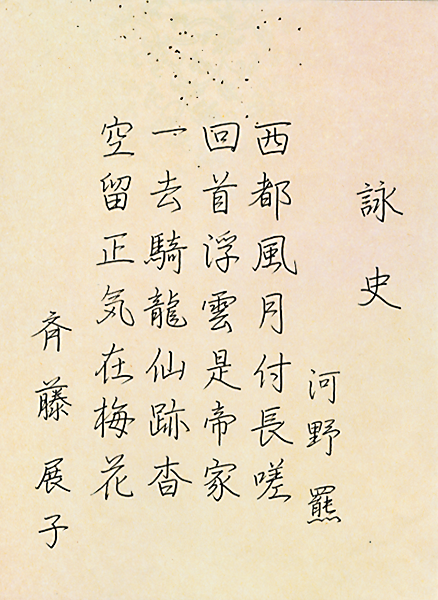 詠史
河野羆
西都風月付長嗟
回首浮雲是帝家
一去騎龍仙跡杳
空留正気在梅花
斉藤展子